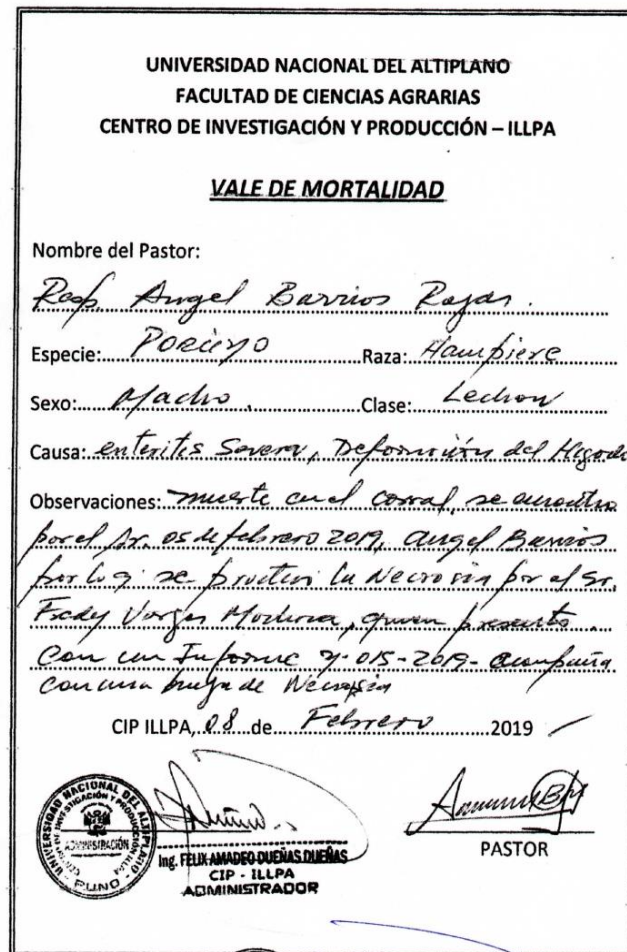 UNIVERSIDAD NACIONAL DEL ALTIPLANO
FACULTAD DE CIENCIAS AGRARIAS
CENTRO DE INVESTIGACIÓN Y PRODUCCIÓN – ILLPA
VALE DE MORTALIDAD
Nombre del Pastor:
Resp Angel Barrios Rojas.
Especie: Porcino Raza: Hampiere
Sexo: Macho. Clase: Lechon
Causa: enterites Severa, Deformición del Higado
Observaciones: muerte en el corral, se encontro
por el Sr. 05 de febrero 2019, Angel Barrios
por lo q' se la Necrosia por el Sr.
Fredy Vargas quien presenta
Con un Informe 015-2019- acompaña
con una de Necrosia
CIP ILLPA, 08 de Febrero 2019
UNIVERSIDAD NACIONAL DEL ALTIPLANO
CENTRO DE INVESTIGACIÓN Y PRODUCCIÓN ILLPA
ADMINISTRACIÓN
PUNO
Ing. FELIX AMADEO DUEÑAS DUEÑAS
CIP - ILLPA
ADMINISTRADOR
PASTOR